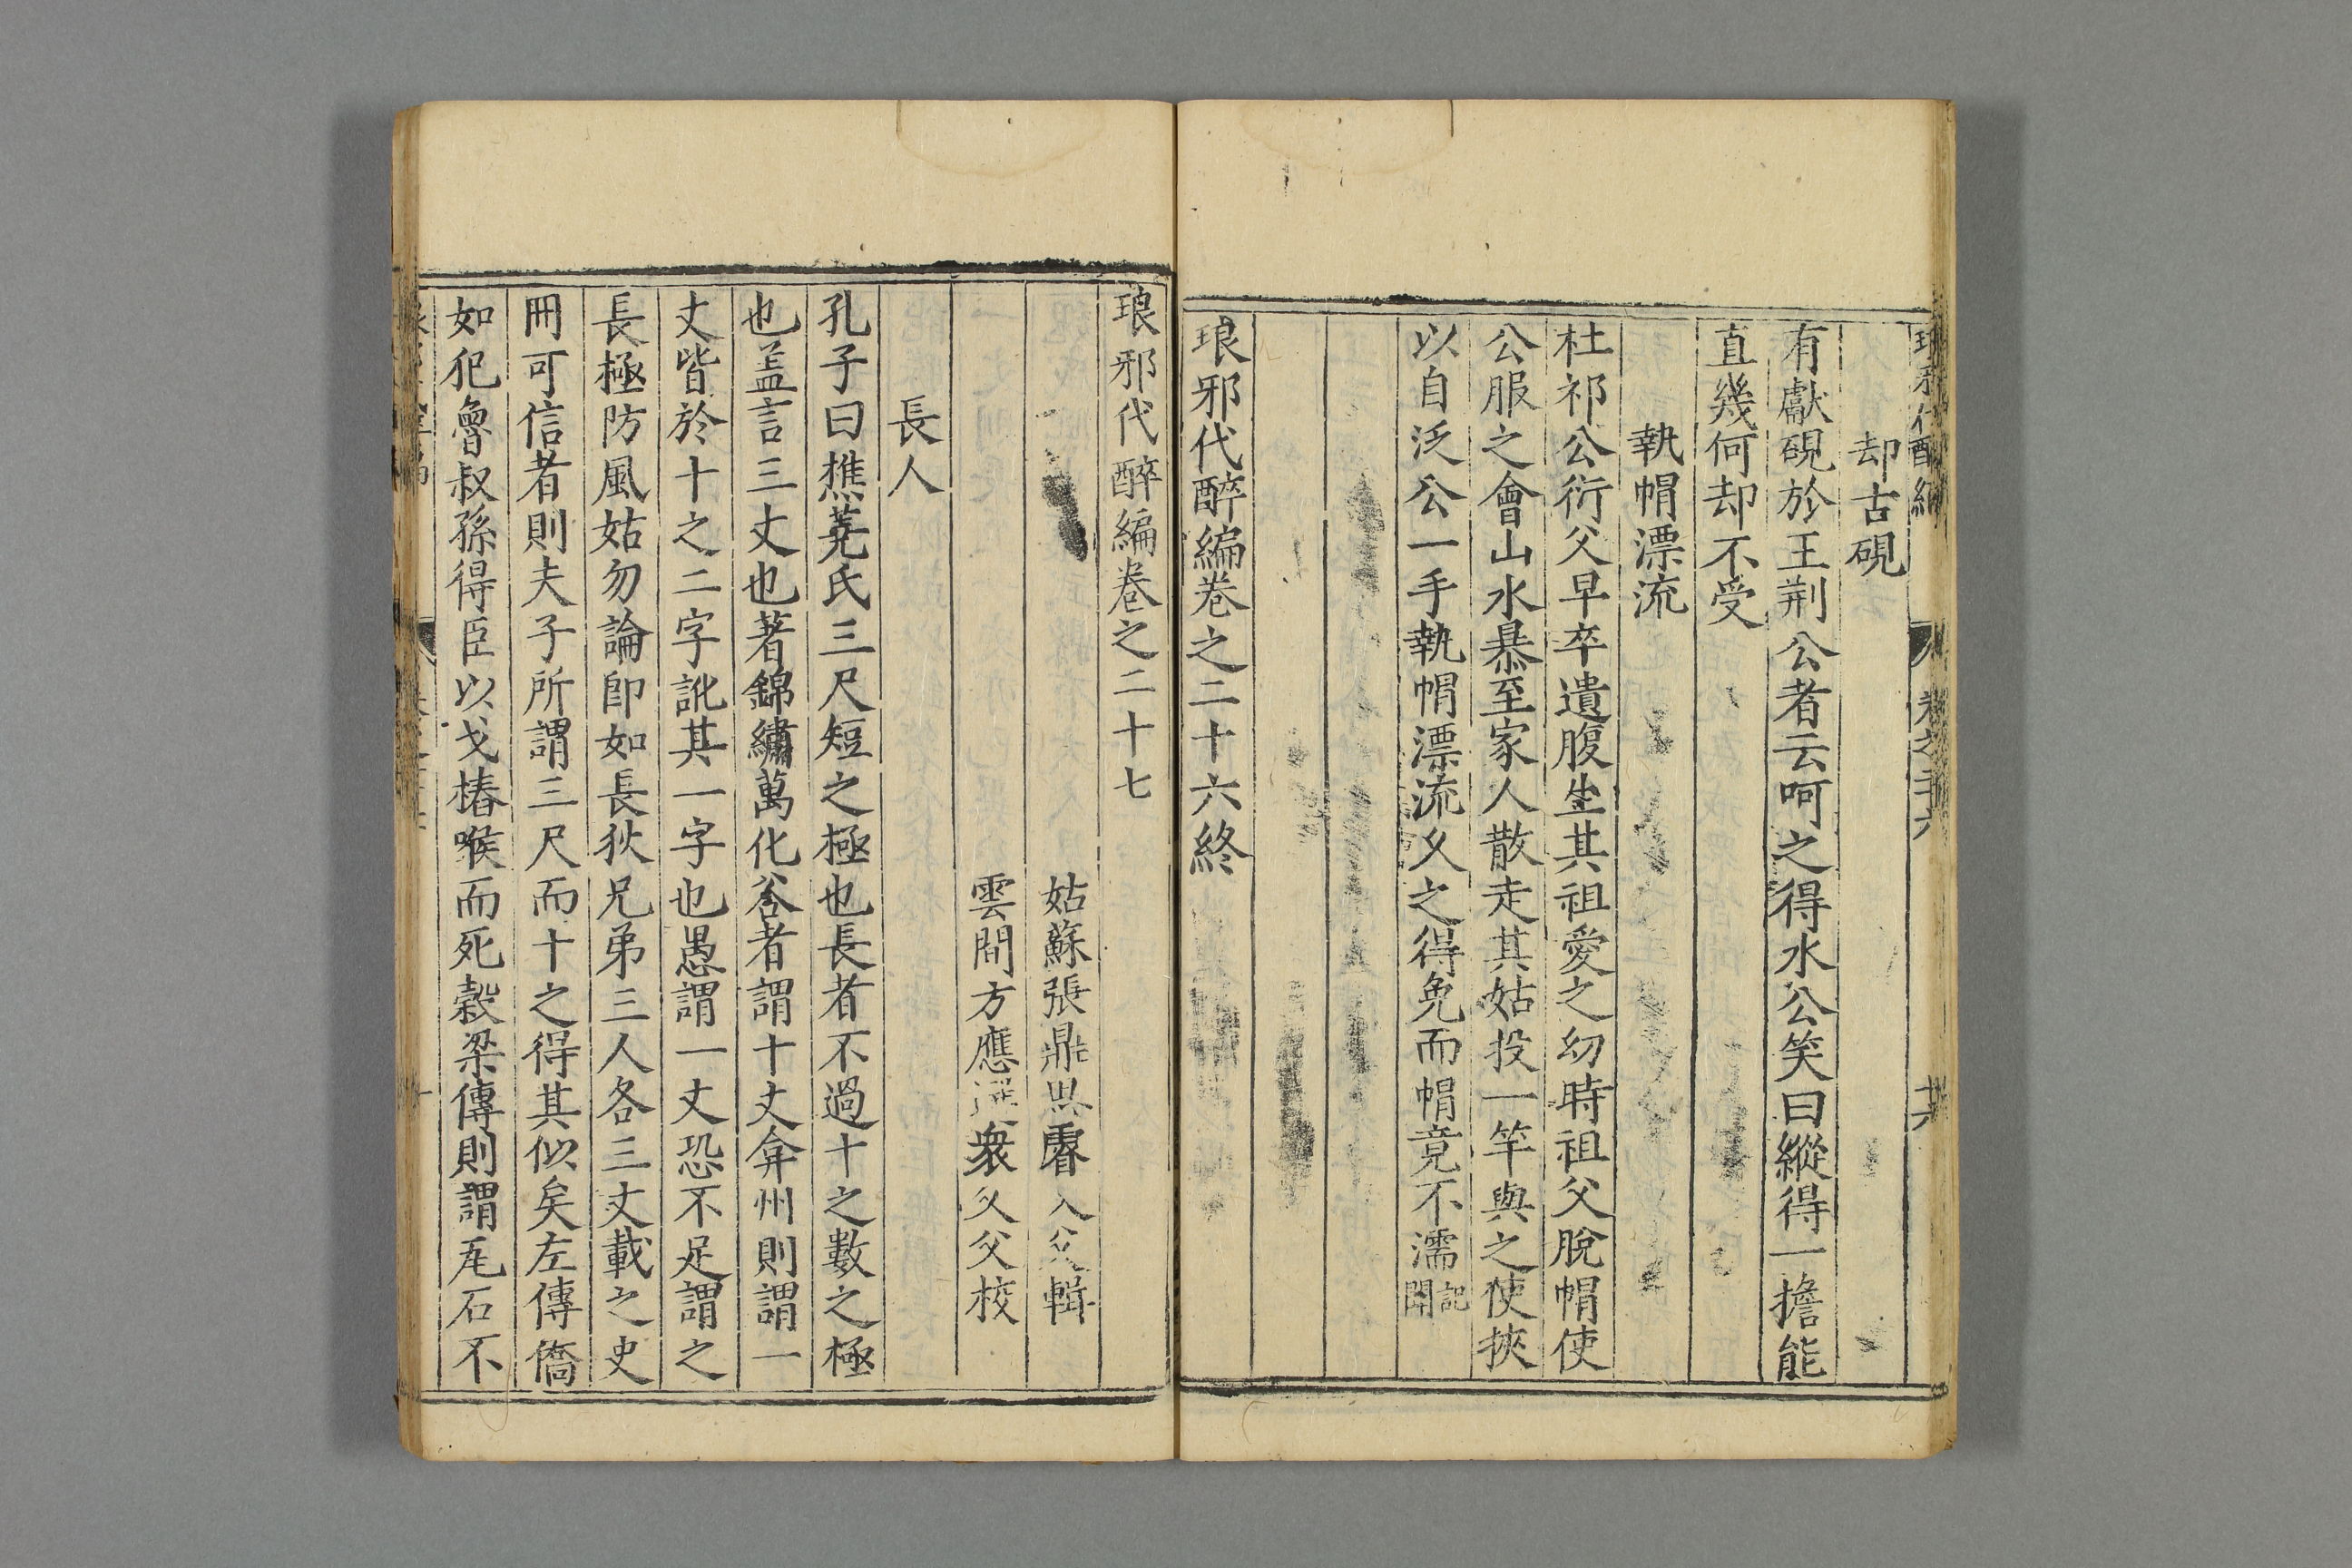 却古硯
有獻硯於王荆公者云呵之得水公笑曰縱得一擔能
直幾何却不受
執帽漂流
杜祁公衍父早卒遺腹生其祖愛之幼時祖父脫帽使
公服之會山水暴至家人散走其姑投一竿與之使挾
以自泛公一手執帽漂流久之得免而帽竟不濡記聞
琅邪代醉編卷之二十六終
琅邪代醉編卷之二十七
姑蘇張鼎思睿父父輯
雲間方應選衆父父校
長人
孔子曰僬蕘氏三尺短之極也長者不過十之數之極
也盖言三丈也著錦繡萬化谷者謂十丈弇州則謂一
丈皆於十之二字訛其一字也愚謂一丈恐不足謂之
長極防風姑勿論卽如長狄兄弟三人各三丈載之史
冊可信者則夫子所謂三尺而十之得其似矣左傳僑
如犯魯叔孫得臣以戈樁喉而死穀梁傳則謂瓦石不